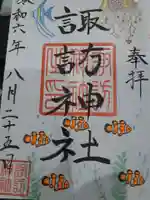 奉拝
諏方神社
令和六年 八月二十五日